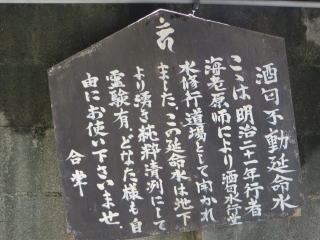 酒匂不動延命水
ここは明治二十一年行者
海老原師により酒匂水行堂
水修行道場として開かれ
ました。この延命水は地下
より湧き純粋清冽にして
霊験有、どなた様も自
由にお使い下さいませ
合掌